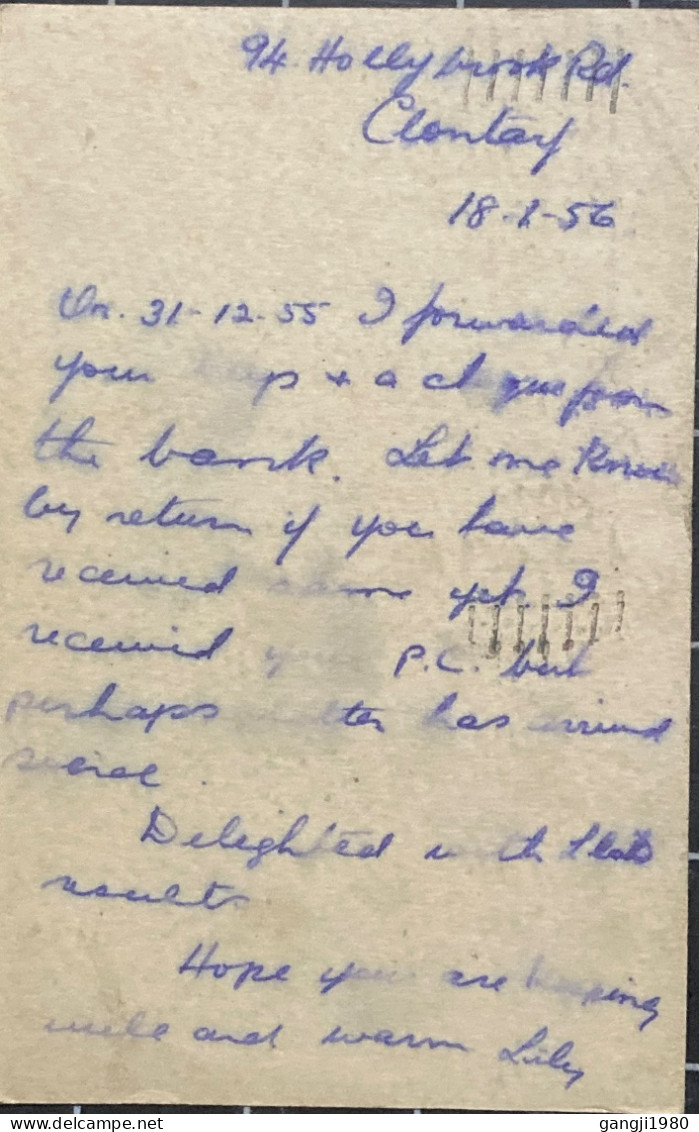 94 Hollybrook Rd.
Clontarf
18-1-56
On. 31-12-55 I forwarded
your + a cheque from
the bank. Let me know
by return if you have
received same yet. I
received your P.C. but
perhaps letter has arrived
since.
Delighted with
results
Hope you are keeping
well and warm Lily
gangji1980